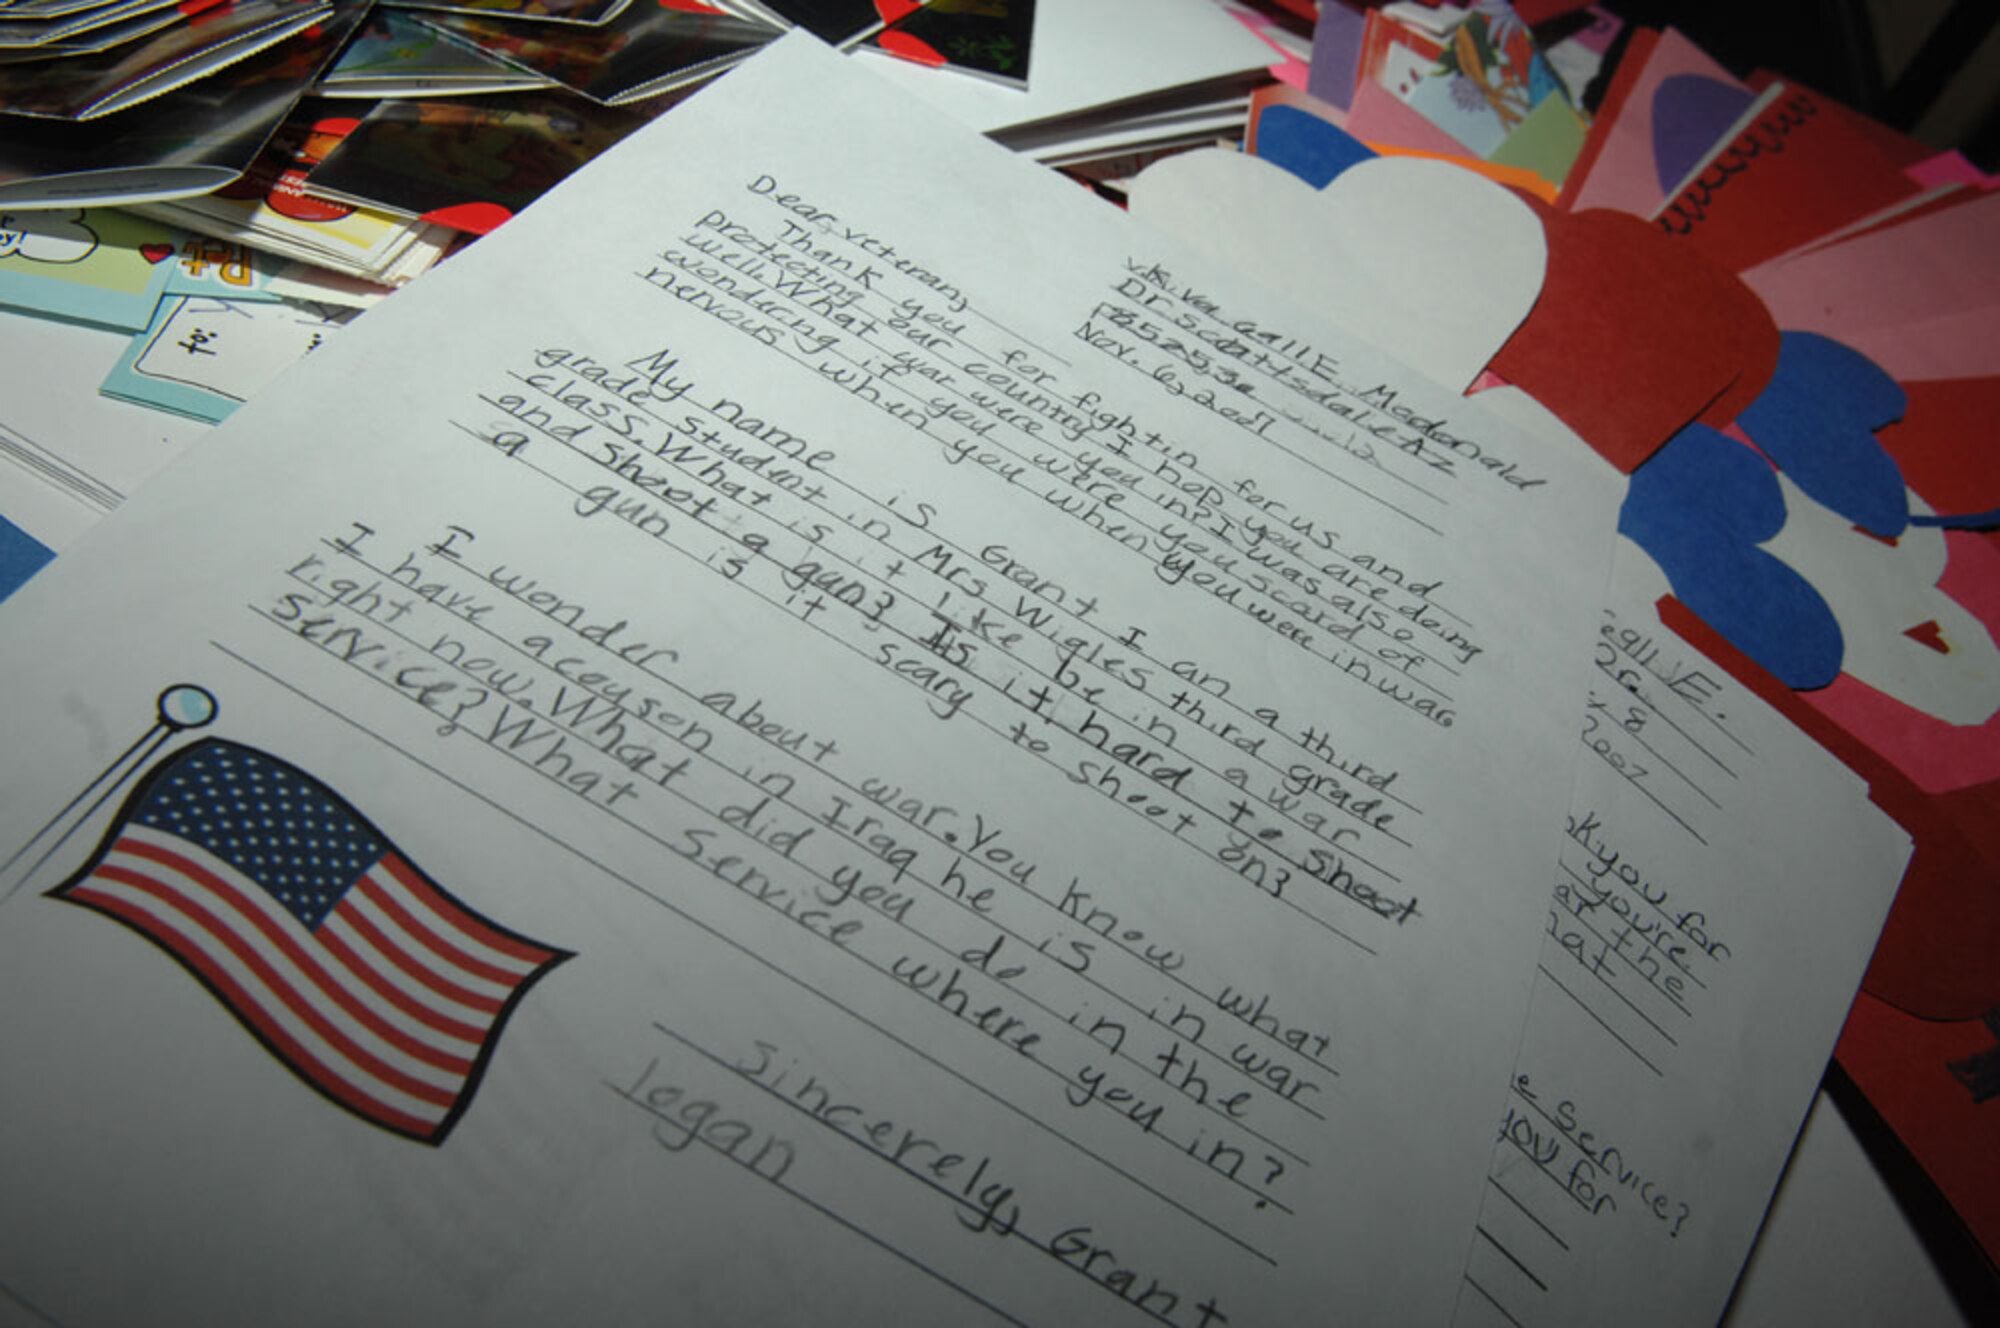 Va Gall E. Macdonald
Dr. Scottsdale Az
Nov. 6, 2007
Dear, veteran,
Thank you for fightin for us and
protecting our country I hop you are doing
well. What war were you in? I was also
wondering if you were you scard of
nervous when you when you were in war.
My name is Grant I an a third
grade student in Mrs Wigles third grade
class. What is it like be in a war
and shoot a gun? Is it hard to shoot
a gun is it scary to shoot on?
I wonder about war. You know what
I have a couson in Iraq he is in war
right now. What did you do in the
service? What service where you in?
Sincerely, Grant
logan
to:
egll E.
Dr.
8
2007
you for
you're
at the
hat
e service?
you for